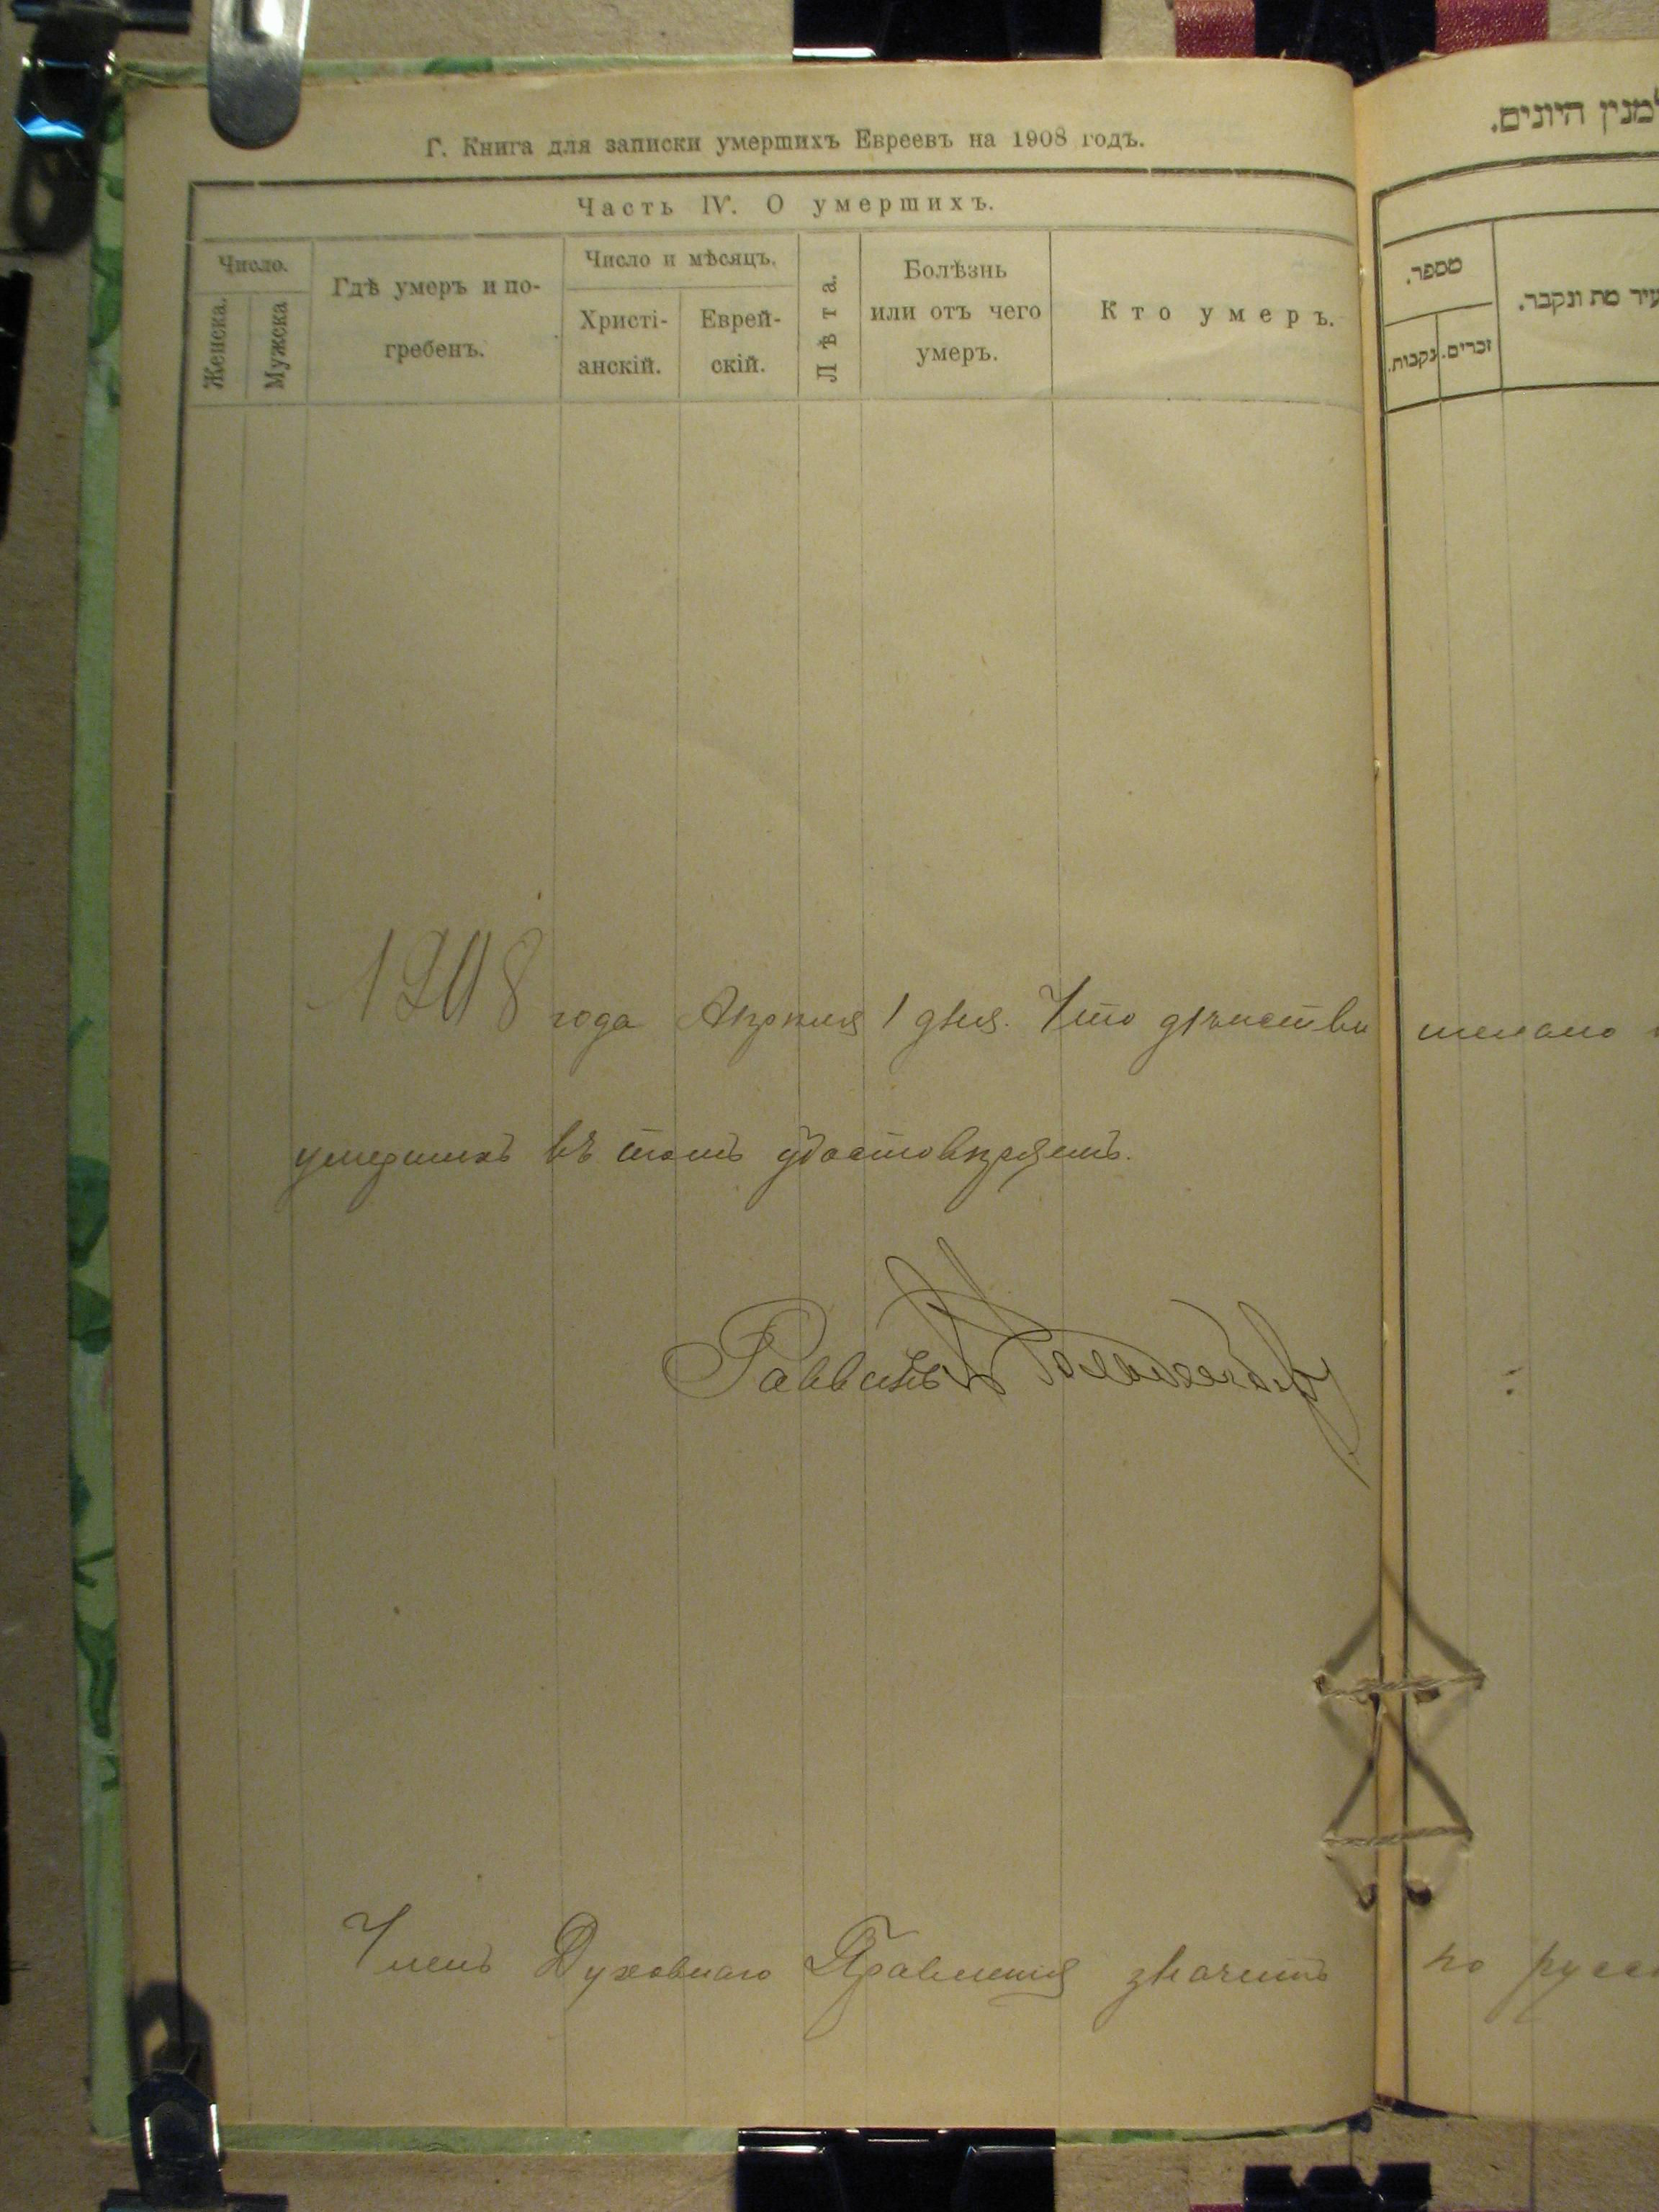 Г. Книга для записки умершихъ Евреевъ на 1908 годъ.
Часть IV. О умершихъ.
Число.
Женска.
Мужска
Гдѣ умеръ и по-
гребенъ.
Число и мѣсяцъ.
Христі-
анскій.
Еврей-
скій.
Лѣта.
Болѣзнь
или отъ чего
умеръ.
Кто умеръ.
1908 года Апрѣля 1 дня. Что
умершихъ въ томъ удостовѣряетъ.
Раввинъ
Членъ Духовнаго Правленія значитъ
למנין היונים.
מספר.
נקבות.
זכרים.
עיר מת ונקבר.
по